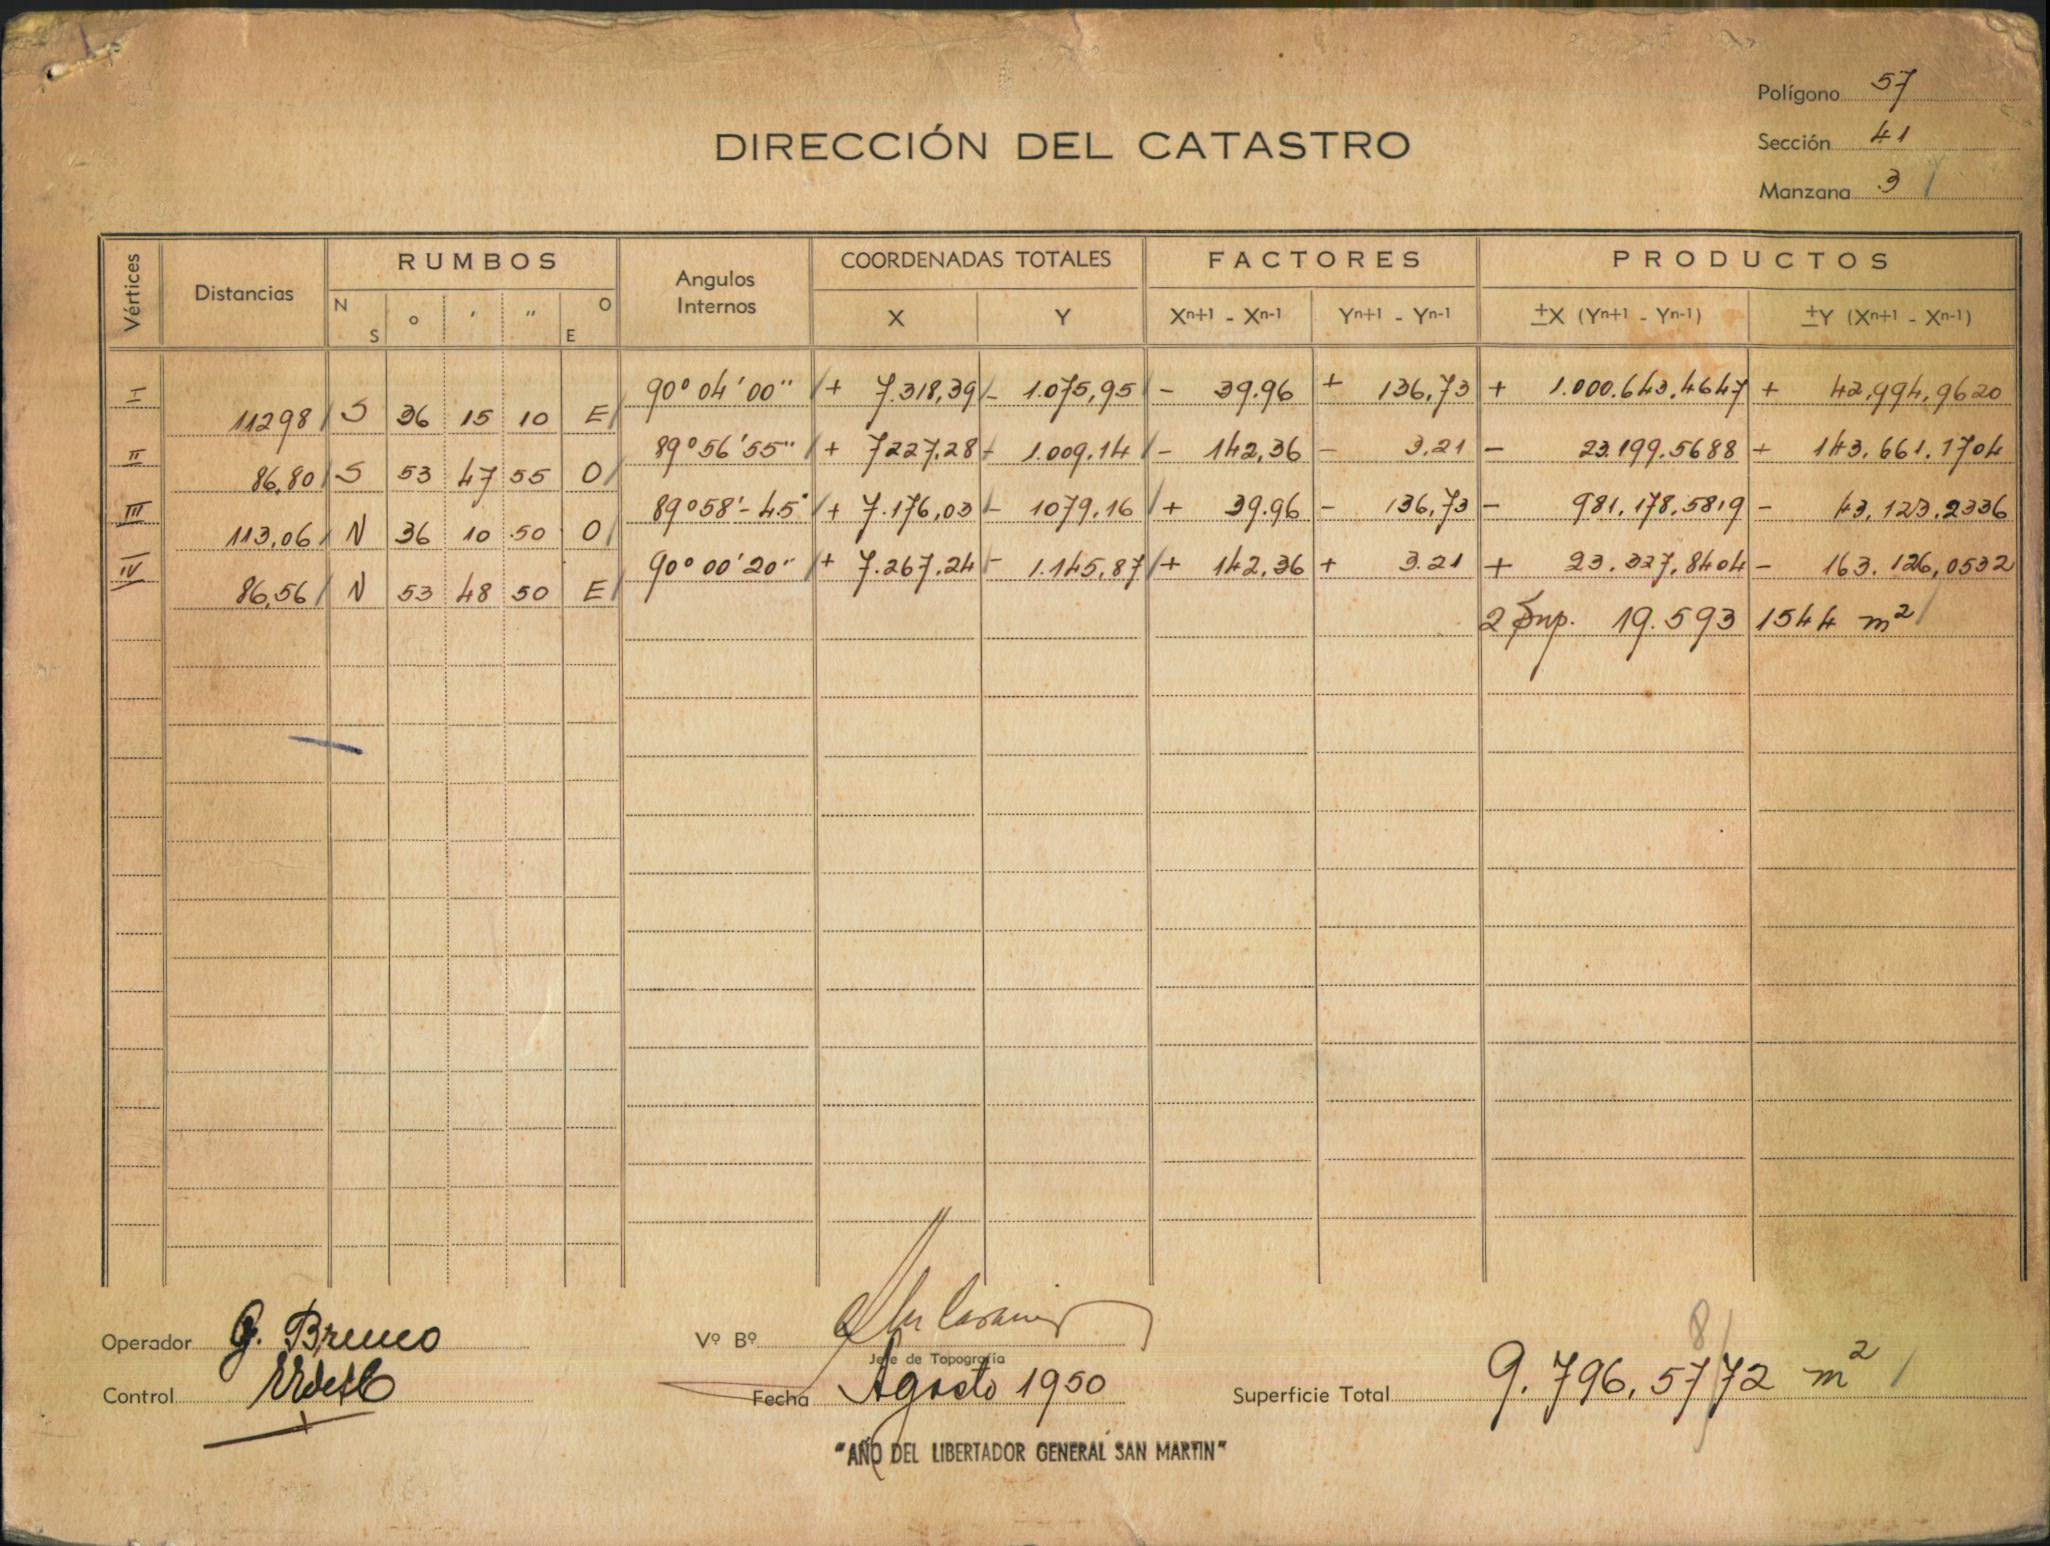 Polígono 57
DIRECCIÓN DEL CATASTRO
Sección 41
Manzana 3
Vértices Distancias RUMBOS Angulos Internos COORDENADAS TOTALES FACTORES PRODUCTOS
N S o ' " O E X Y Xn+1 - Xn-1 Yn+1 - Yn-1 ±X (Yn+1 - Yn-1) ±Y (Xn+1 - Xn-1)
I 90° 04' 00" + 7.318,39 - 1.075,95 - 39.96 + 136,73 + 1.000.643.4647 + 42,994,9620
11298 S 36 15 10 E
II 89° 56' 55" + 7227,28 - 1.009.14 - 142,36 - 3.21 - 23.199.5688 + 143.661.1704
86,80 S 53 47 55 O
III 89° 58' - 45" + 7.176,03 - 1079.16 + 39.96 - 136,73 - 981.178.5819 - 43.123.2336
113,06 N 36 10 50 O
IV 90° 00' 20" + 7.267.24 - 1.145,87 + 142,36 + 3.21 + 23.327,8404 - 163.126,0532
86,56 N 53 48 50 E
2 Sup. 19.593 1544 m²
Operador G. Bruno
Vº Bº
Jefe de Topografía
8
Control
Fecha Agosto 1950
Superficie Total 9.796,5772 m²
"AÑO DEL LIBERTADOR GENERAL SAN MARTIN"